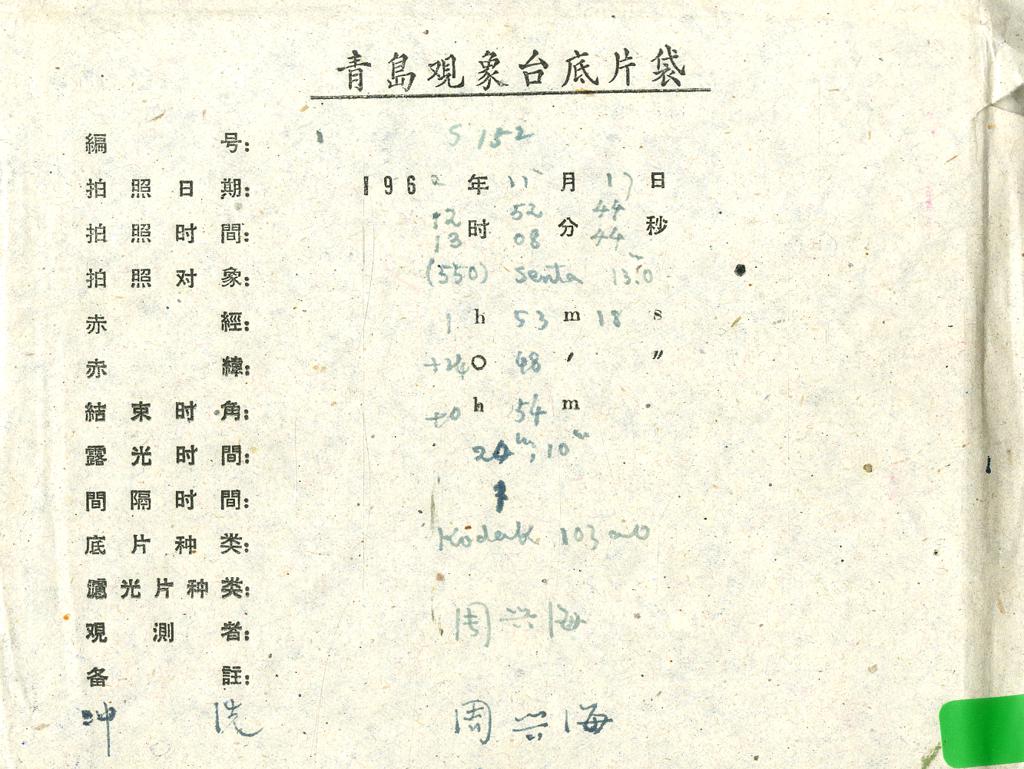 青島观象台底片袋
編号: S 152
拍照日期: 1962年11月17日
拍照时間: 12时52分44秒
13 08 44
拍照对象: (550) Senta 13.0
赤經: 1h 53m 18s
赤緯: +24° 48′ ″
結束时角: +0h 54m
露光时間: 20m; 10m
間隔时間:
底片种类: Kodak 103aO
濾光片种类:
观測者: 周兴海
备註:
冲洗 周兴海